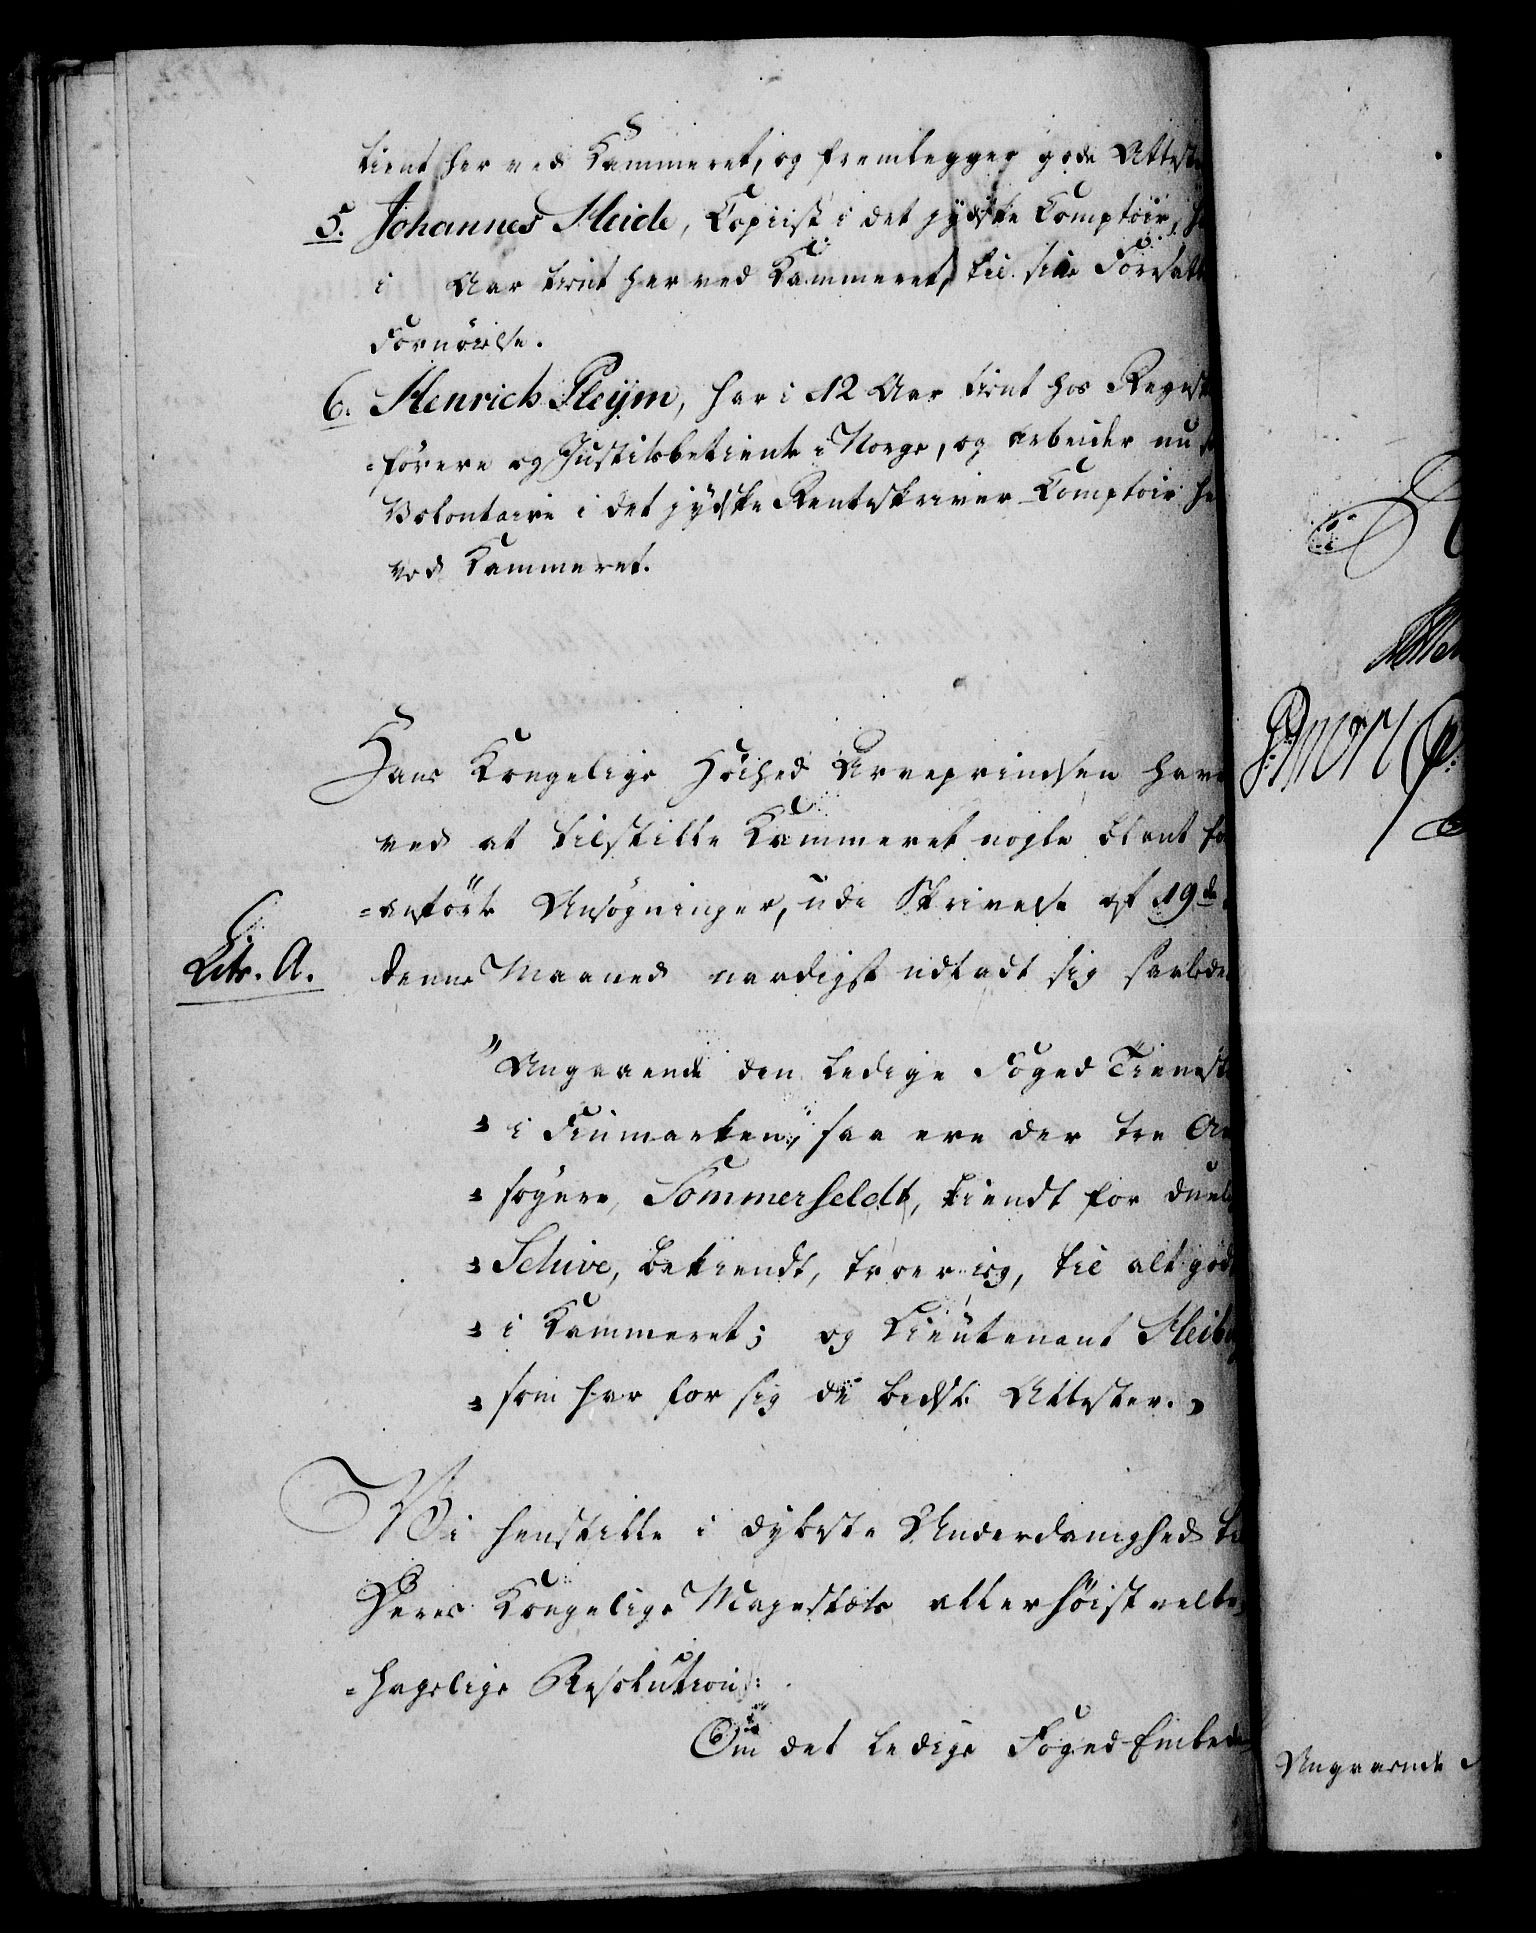 tient her ved Kammeret, og fremlegger gode Attest
5. Johannes Heide, Copiist i det jydske Comptoir,
i Aar tient her ved Kammeret, til sine Forsatt
Fornöielse.
6. Henrich Pleÿm, har i 12 Aar tient hos Regnsk
=förere og Justitsbetiente i Norge, og arbeider nu
Volontaire i det jydske Renteskriver-Comptoir he
ved Kammeret.
Hans Kongelige Höihed Arveprindsen have
ved at tilstille Kammeret nogle blant for
=anförte Ansögninger, udi Skrivelse af 19de
Litr. A.
denne Maaned naadigst udladt sig saalede
"Angaaende den ledige Foged Tienest
" i Finmarken, saa ere der tre An
" sögere, Sommerfeldt, kiendt for duel
" Schive, bekiendt, troer jeg, til alt godt
" i Kammeret; og Lieutenant Heib
" som har for sig de bedste Attester."
Vi henstille i dybeste Underdanighed til
Deres Kongelige Majestæts allerhöist velbe
=hagelige Resolution:
Om det ledige Foged-Embede
Angaaende